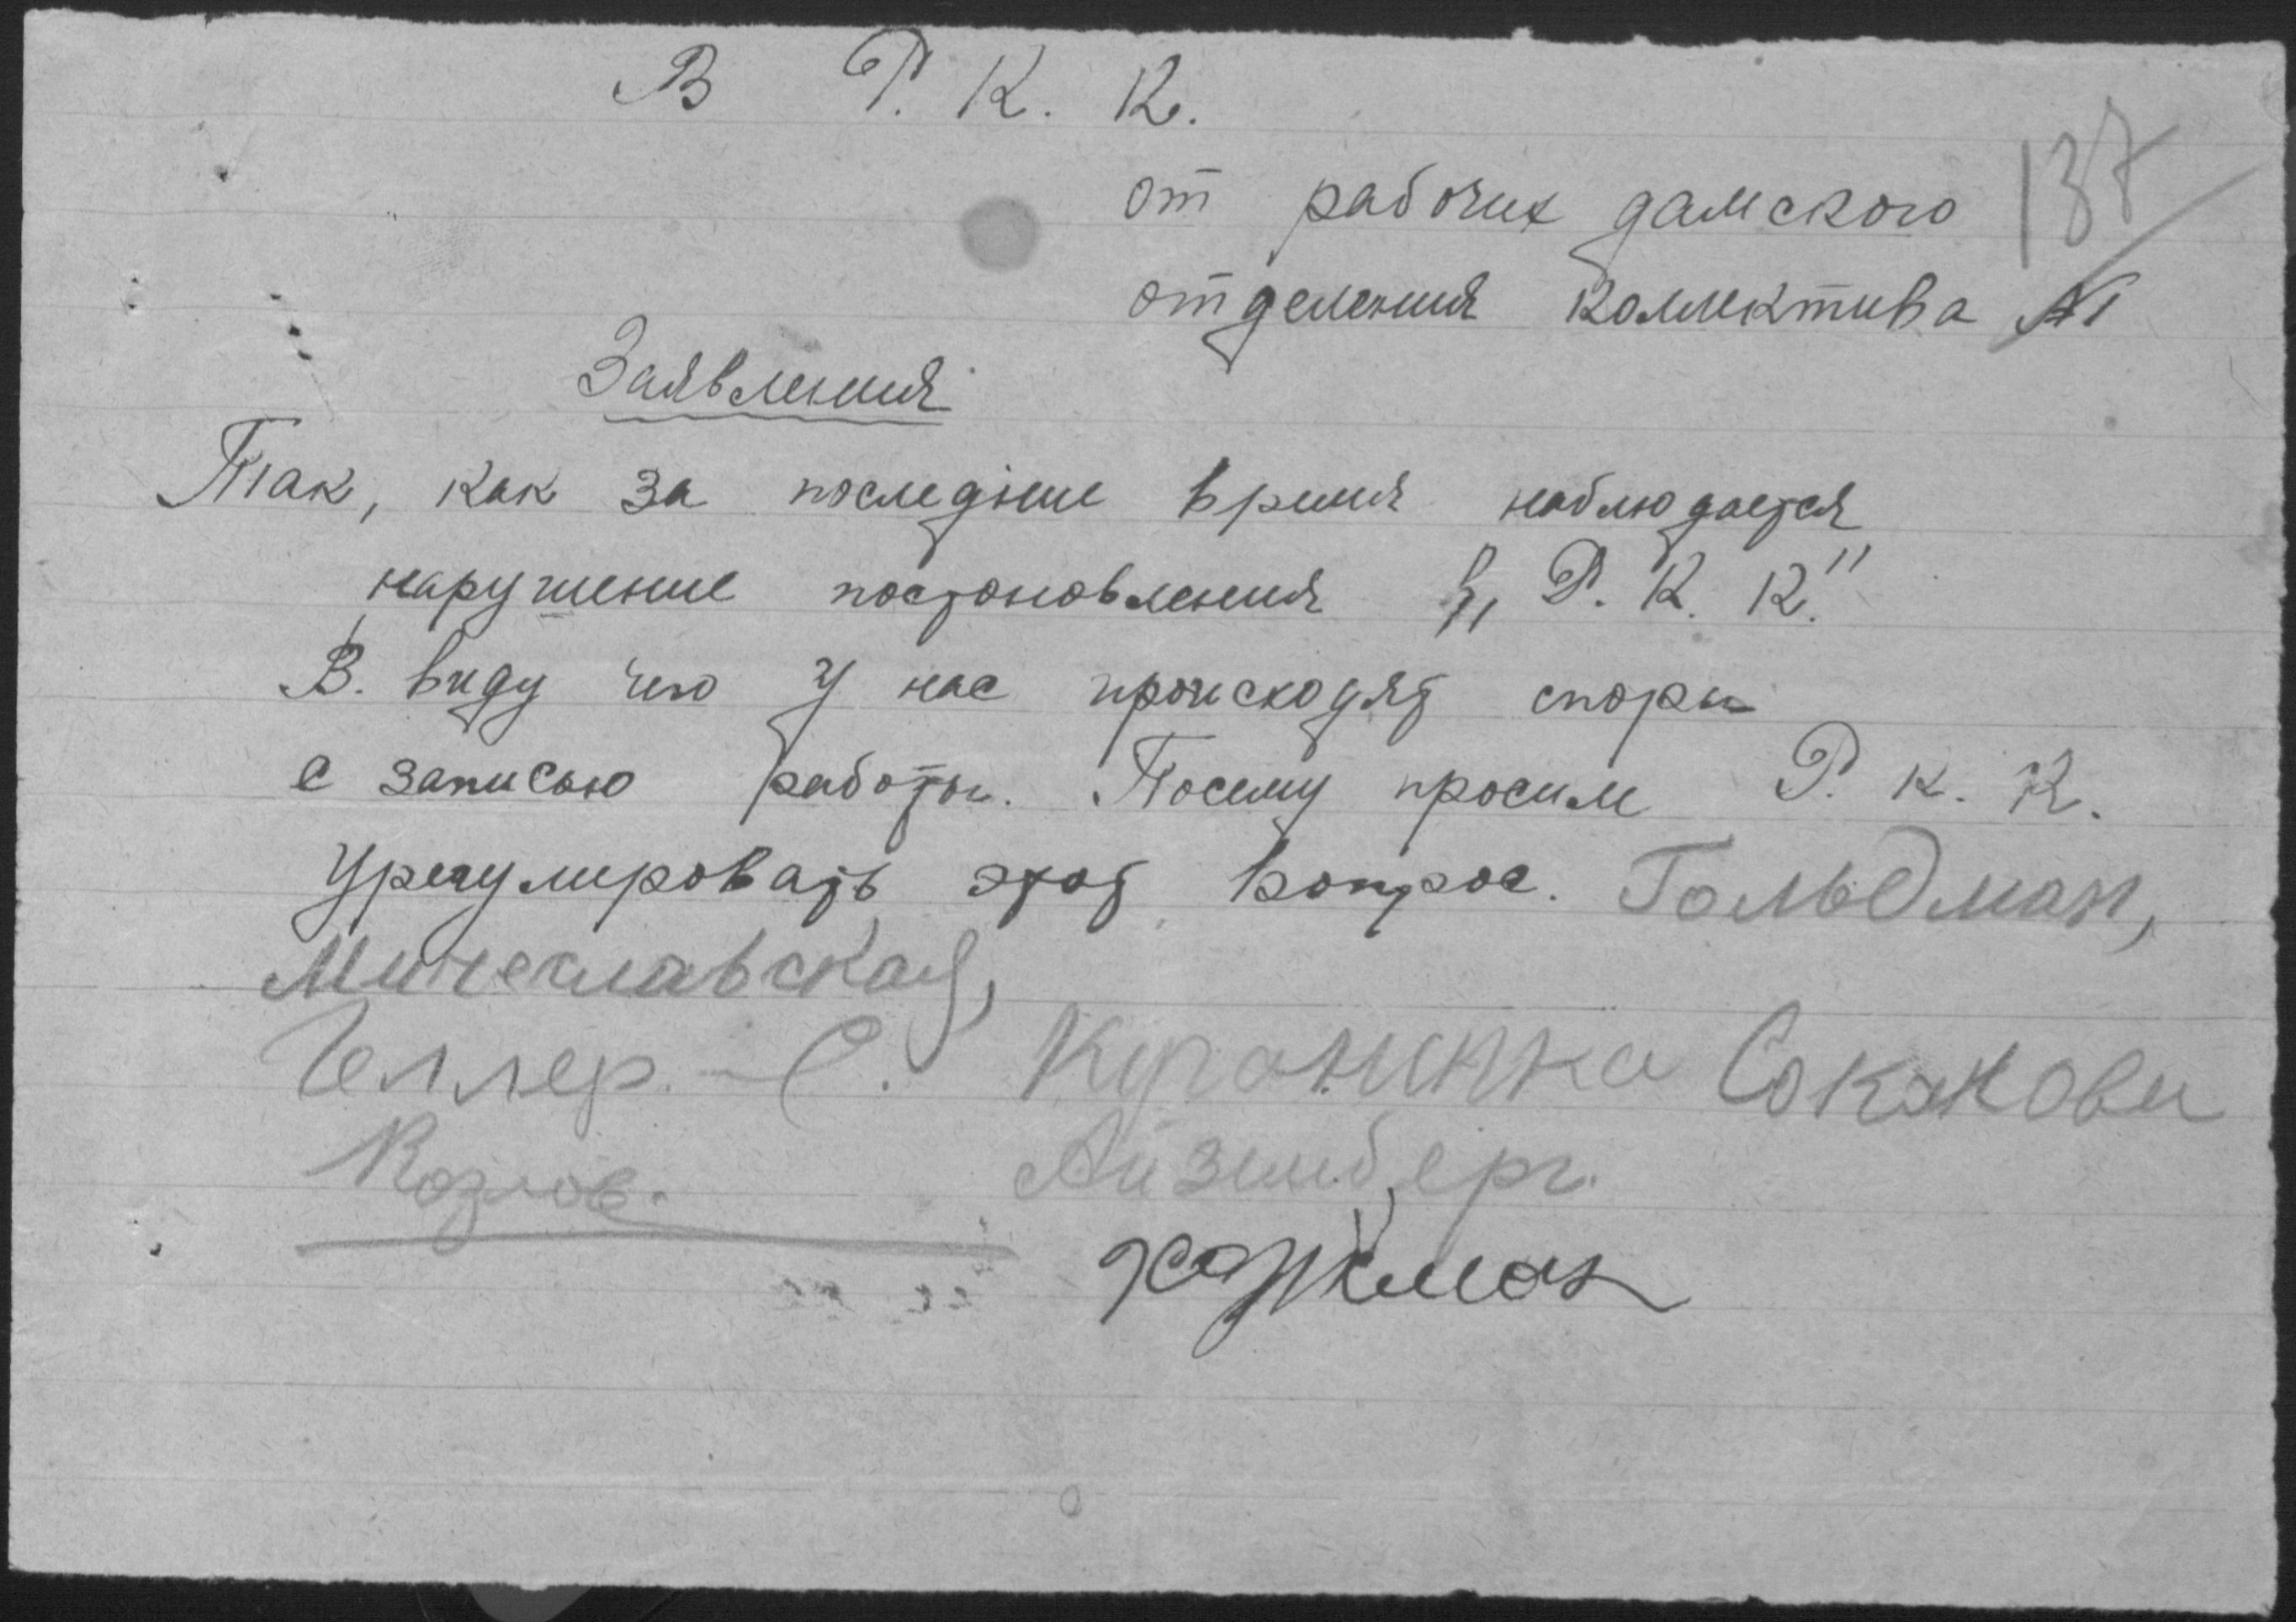 В Р. К. К.
137
от рабочих дамского
отделения коллектива №1
Заявления
Так, как за последние время наблюдается
нарушение постановления „Р. К. К."
В. виду чего у нас происходят споры
с записью работы. Посему просим Р. К. К.
Урегулировать этот вопрос. Гольдман,
Мичеславская,
Геллер. - С.
Козлов. Айземберг.